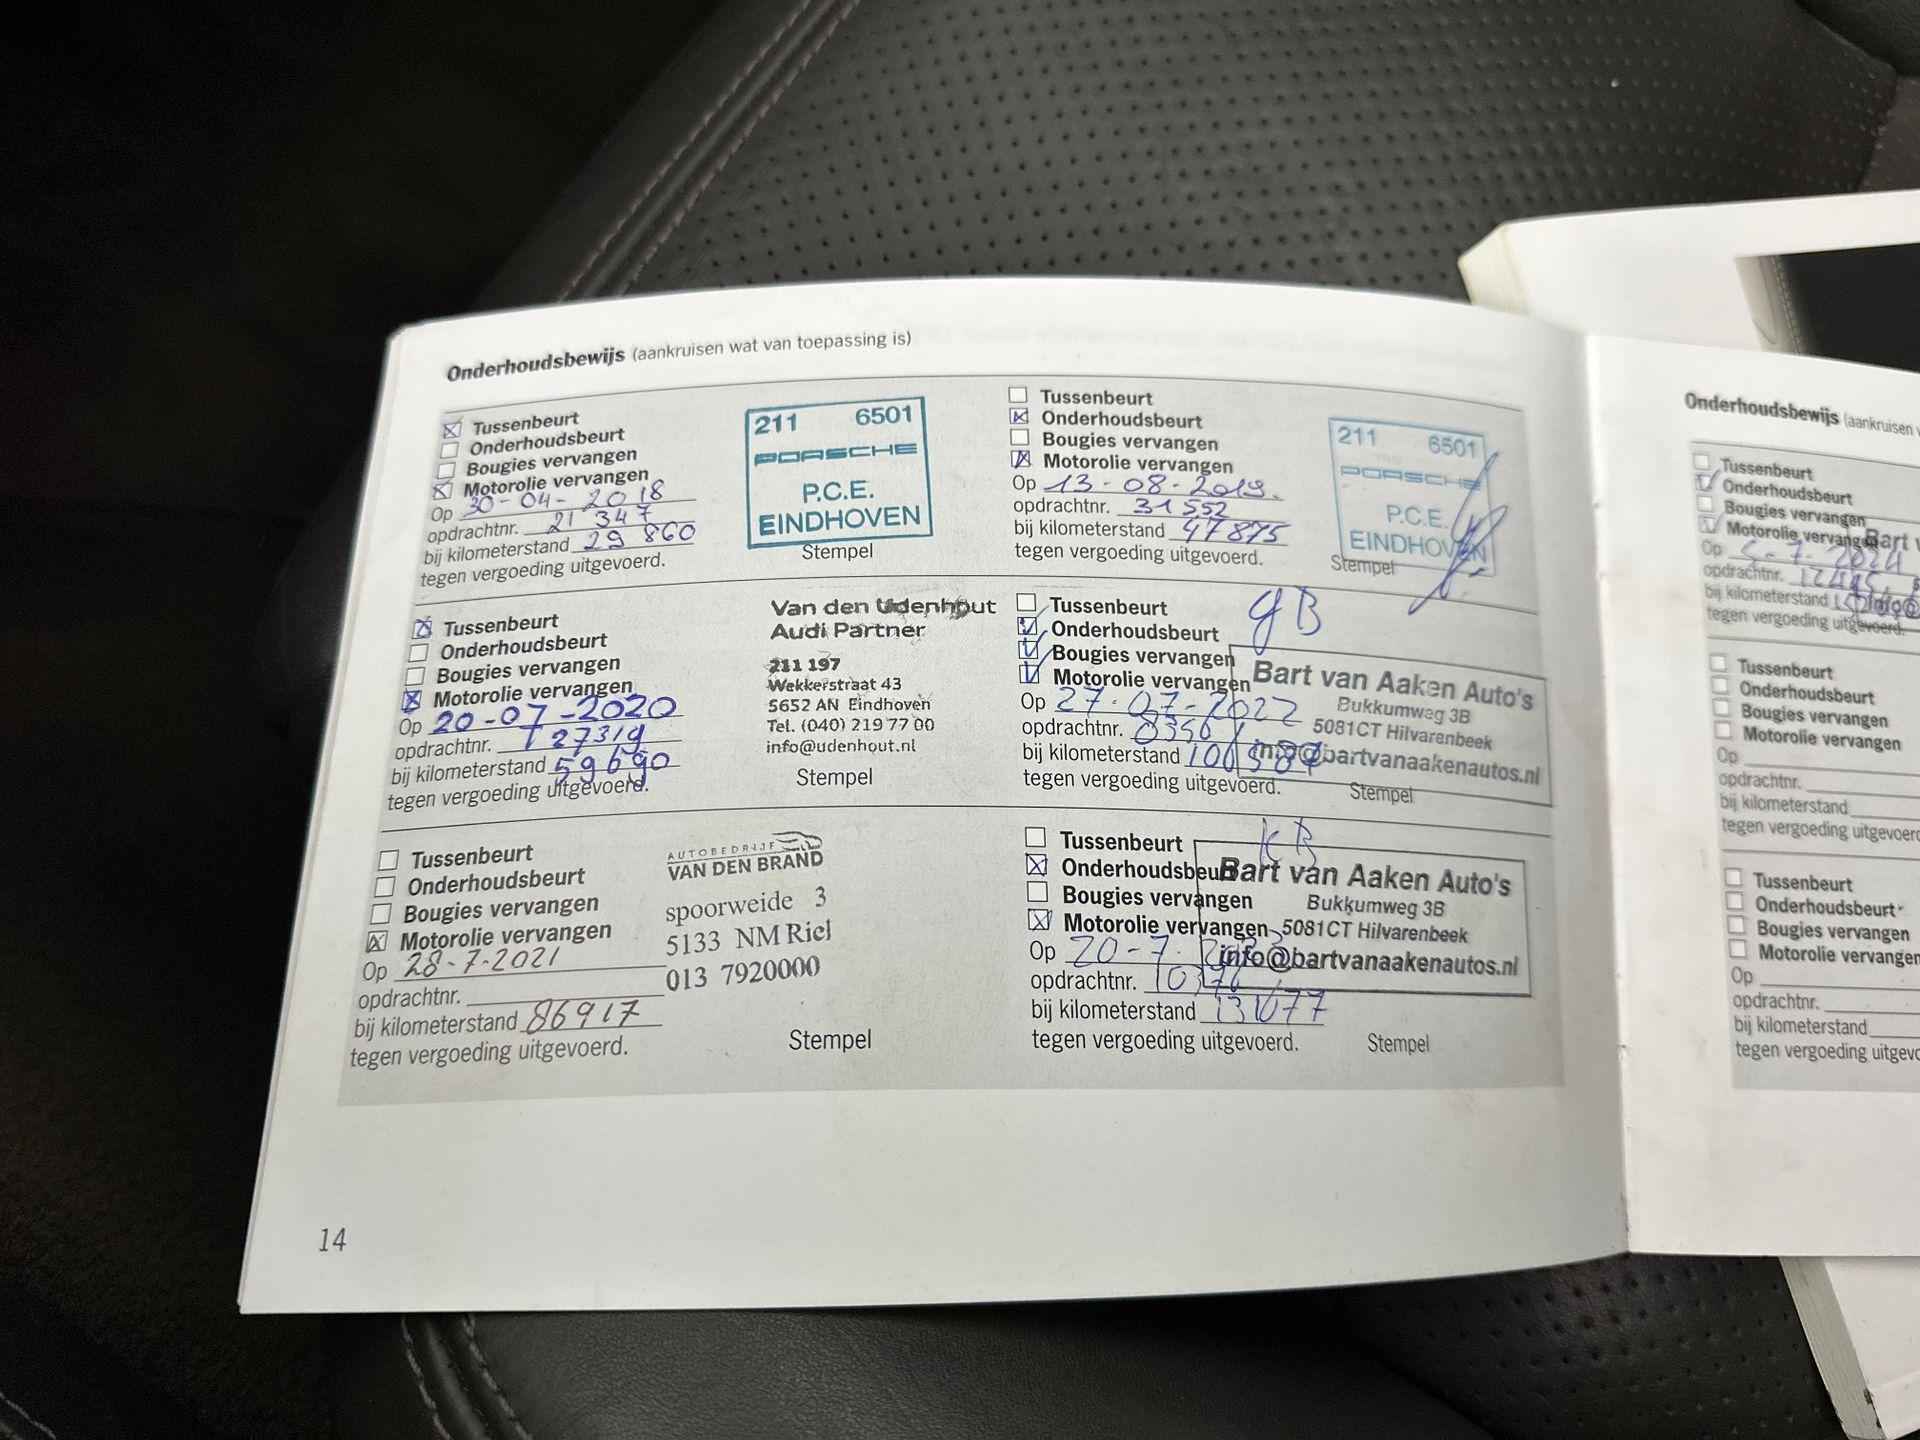 Onderhoudsbewijs (aankruisen wat van toepassing is)
Tussenbeurt
Onderhoudsbeurt
Bougies vervangen
Motorolie vervangen
Op 30-04-2018
opdrachtnr. 21 347
bij kilometerstand 29 860
tegen vergoeding uitgevoerd.
211 6501
PORSCHE
P.C.E.
EINDHOVEN
Stempel
Tussenbeurt
Onderhoudsbeurt
Bougies vervangen
Motorolie vervangen
Op 13-08-2019.
opdrachtnr. 31552
bij kilometerstand 47875
tegen vergoeding uitgevoerd.
211 6501
PORSCHE
P.C.E.
EINDHOVEN
Stempel
Tussenbeurt
Onderhoudsbeurt
Bougies vervangen
Motorolie vervangen
Op 20-07-2020
opdrachtnr. 127319
bij kilometerstand 59690
tegen vergoeding uitgevoerd.
Van den Udenhout
Audi Partner
211 197
Wekkerstraat 43
5652 AN Eindhoven
Tel. (040) 219 77 00
info@udenhout.nl
Stempel
Tussenbeurt
Onderhoudsbeurt
Bougies vervangen
Motorolie vervangen
Op 27-07-2022
opdrachtnr.
bij kilometerstand
tegen vergoeding uitgevoerd.
GB
Bart van Aaken Auto's
Bukkumweg 3B
5081CT Hilvarenbeek
info@bartvanaakenautos.nl
Stempel
Tussenbeurt
Onderhoudsbeurt
Bougies vervangen
Motorolie vervangen
Op 28-7-2021
opdrachtnr.
bij kilometerstand 86917
tegen vergoeding uitgevoerd.
AUTOBEDRIJF
VAN DEN BRAND
spoorweide 3
5133 NM Riel
013 7920000
Stempel
Tussenbeurt
Onderhoudsbeurt
Bougies vervangen
Motorolie vervangen
Op 20-7-
opdrachtnr.
bij kilometerstand
tegen vergoeding uitgevoerd.
KB
Bart van Aaken Auto's
Bukkumweg 3B
5081CT Hilvarenbeek
info@bartvanaakenautos.nl
Stempel
14
Onderhoudsbewijs (aankruisen
Tussenbeurt
Onderhoudsbeurt
Bougies vervangen
Motorolie vervangen
Bart
Op
opdrachtnr.
bij kilometerstand
tegen vergoeding uitgevoerd.
Tussenbeurt
Onderhoudsbeurt
Bougies vervangen
Motorolie vervangen
Op
opdrachtnr.
bij kilometerstand
tegen vergoeding uitgevoerd
Tussenbeurt
Onderhoudsbeurt
Bougies vervangen
Motorolie vervangen
Op
opdrachtnr.
bij kilometerstand
tegen vergoeding uitgevo